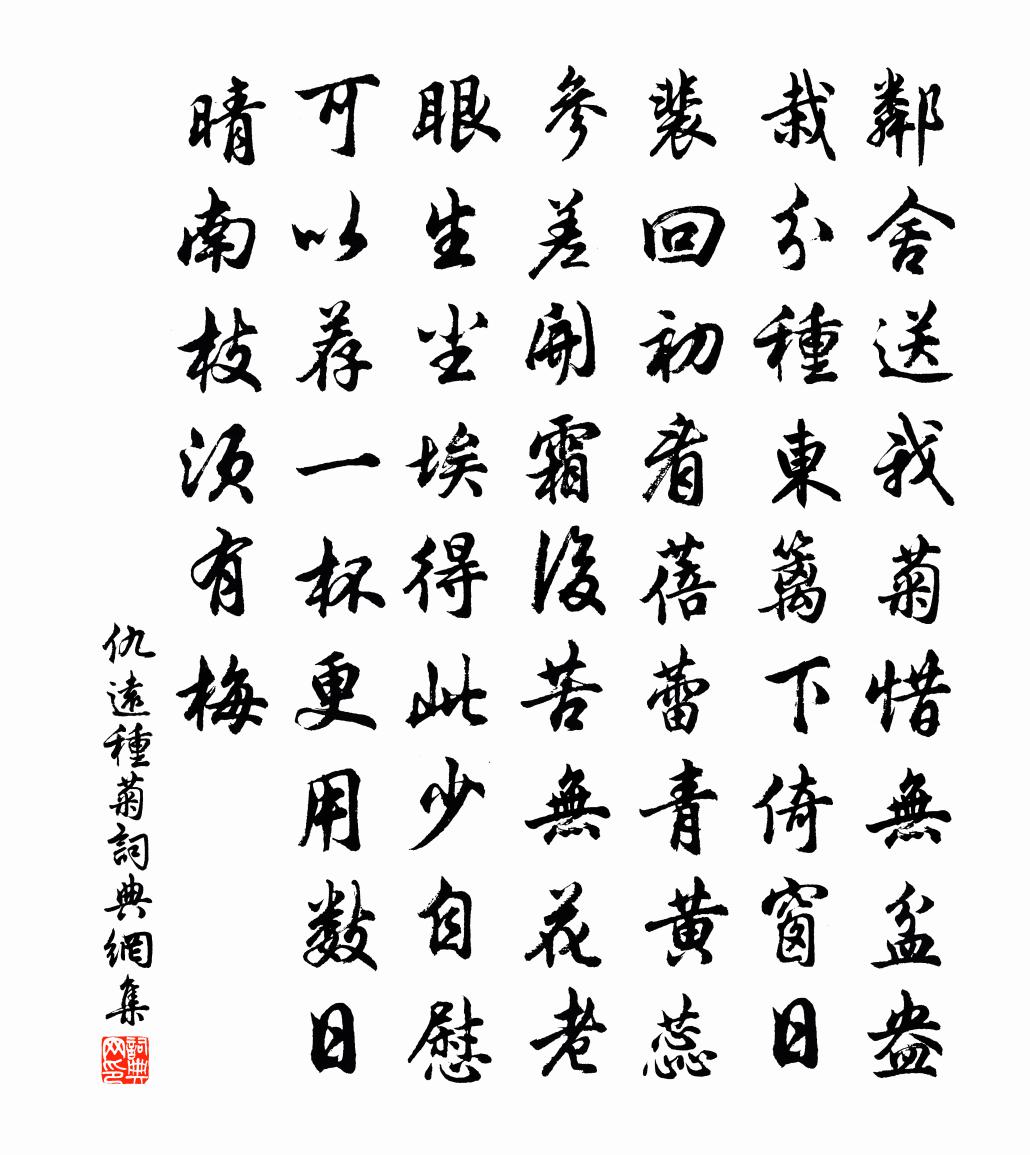 鄰舍送我菊惜無盆盎
栽分種東籬下倚窗日
裴回初看蓓蕾青黃蕊
參差開霜後苦無花老
眼生尘埃得此少自慰
可以荐一杯更用数日
晴南枝須有梅
仇遠種菊詞典網集
詞典网印